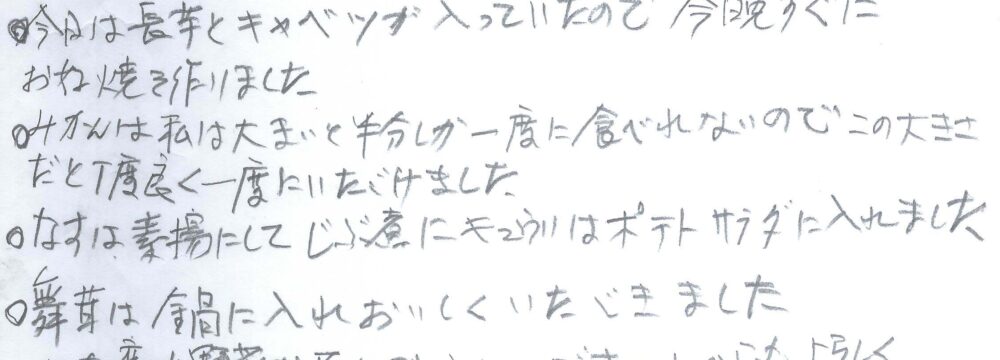 ○今日は長芋とキャベツが入っていたので今晩すぐに
おね焼を作りました
○みかんは私は大きいと半分しか一度に食べれないのでこの大きさ
だと丁度良く一度にいただけました
○なすは素揚にしてじぶ煮にキュウリはポテトサラダに入れました
○舞茸は鍋に入れおいしくいただきました